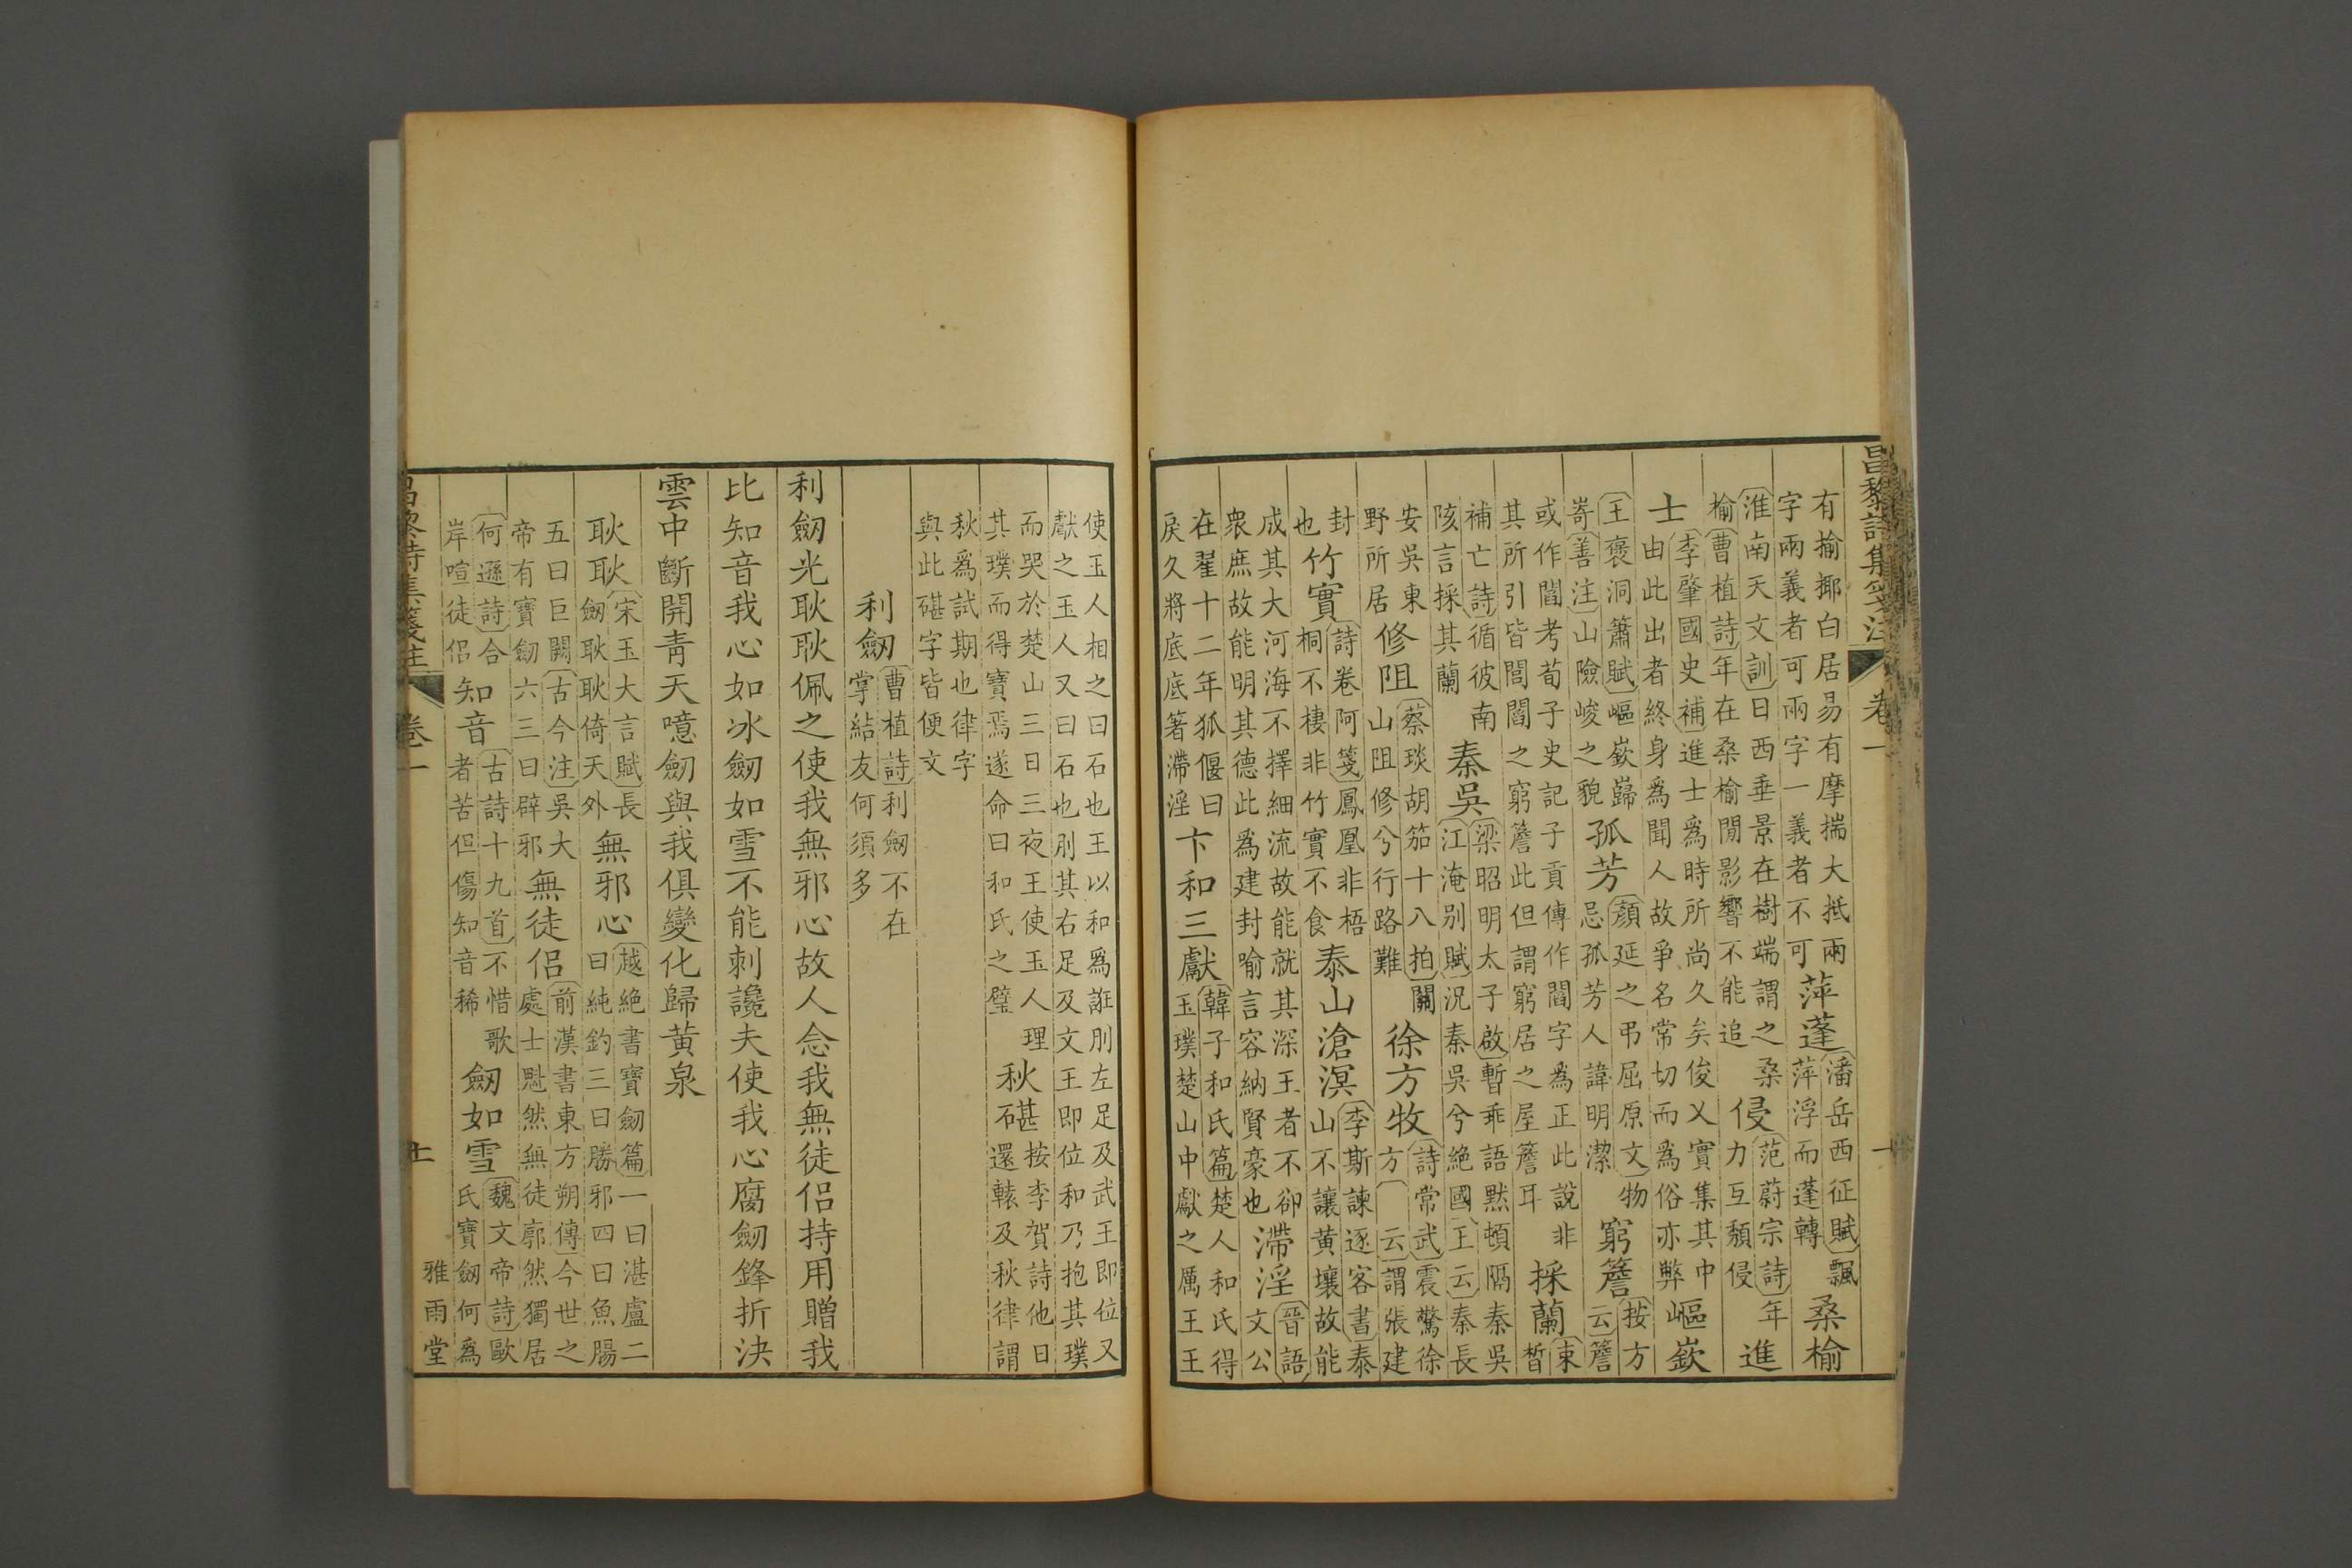 昌黎詩集箋注 卷一 十
有揄揶白居易有摩揣大抵兩字兩義者可兩字一義者不可萍蓬潘岳西征賦飄萍浮而蓬轉桑榆
淮南天文訓日西垂景在樹端謂之桑榆曹植詩年在桑榆閒影響不能追侵范蔚宗詩年力互頽侵進
士李肇國史補進士爲時所尚久矣俊乂實集其中由此出者終身爲聞人故爭名常切而爲俗亦弊嶇嶔
王褒洞簫賦嶇嶔巋嵜善注山險峻之貌孤芳顏延之弔屈原文物忌孤芳人諱明潔窮簷按方云簷
或作閻考荀子史記子貢傳作閻字爲正此說非其所引皆閭閻之窮簷此但謂窮居之屋簷耳採蘭束晳
補亡詩循彼南陔言採其蘭秦吳梁昭明太子啟暫乖語默頓隔秦吳江淹別賦況秦吳兮絕國王云秦長
安吳東野所居修阻蔡琰胡笳十八拍關山阻修兮行路難徐方牧詩常武震驚徐方云謂張建
封也竹實詩卷阿箋鳳凰非梧桐不棲非竹實不食泰山滄溟李斯諫逐客書泰山不讓黄壤故能
成其大河海不擇細流故能就其深王者不卻衆庶故能明其德此爲建封喻言容納賢豪也滯淫晉語文公
在翟十二年狐偃曰戾久將底底著滯淫卞和三獻韓子和氏篇楚人和氏得玉璞楚山中獻之厲王王
使玉人相之曰石也王以和爲誑刖左足及武王即位又獻之玉人又曰石也刖其右足及文王即位和乃抱其璞
而哭於楚山三日三夜王使玉人理其璞而得寶焉遂命曰和氏之璧秋碪按李賀詩他日還轅及秋律謂
秋爲試期也律字與此碪字皆便文
利劒曹植詩利劒不在掌結友何須多
利劒光耿耿佩之使我無邪心故人念我無徒侶持用贈我
比知音我心如冰劒如雪不能刺讒夫使我心腐劒鋒折決
雲中斷開青天噫劒與我俱變化歸黄泉
耿耿宋玉大言賦長劒耿耿倚天外無邪心越絕書寶劒篇一曰湛盧二曰純鈞三曰勝邪四曰魚腸
五曰巨闕古今注吳大帝有寶劒六三曰辟邪無徒侶前漢書東方朔傳今世之處士魁然無徒廓然獨居
何遜詩合岸喧徒侶知音古詩十九首不惜歌者苦但傷知音稀劒如雪魏文帝詩歐氏寶劒何爲
昌黎詩集箋註 卷一 十一 雅雨堂